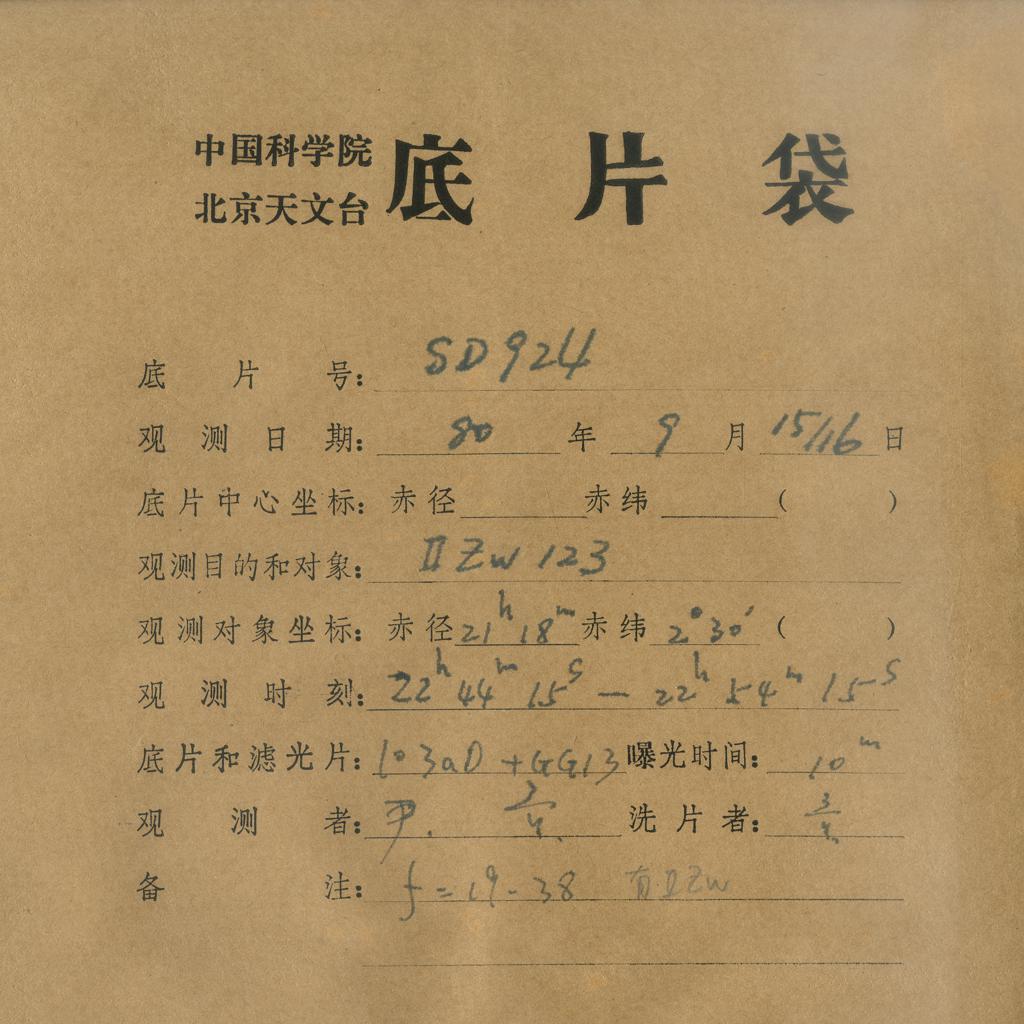 中国科学院
北京天文台
底片袋
底片号: SD924
观测日期: 80 年 9 月 15/16 日
底片中心坐标: 赤径 赤纬 ( )
观测目的和对象: II Zw 123
观测对象坐标: 赤径 21h 18m 赤纬 2°30′ ( )
观测时刻: 22h 44m 15s — 22h 54m 15s
底片和滤光片: 103aD + GG13 曝光时间: 10m
观测者: 尹. 洗片者:
备注: f = 19-38 有 II Zw